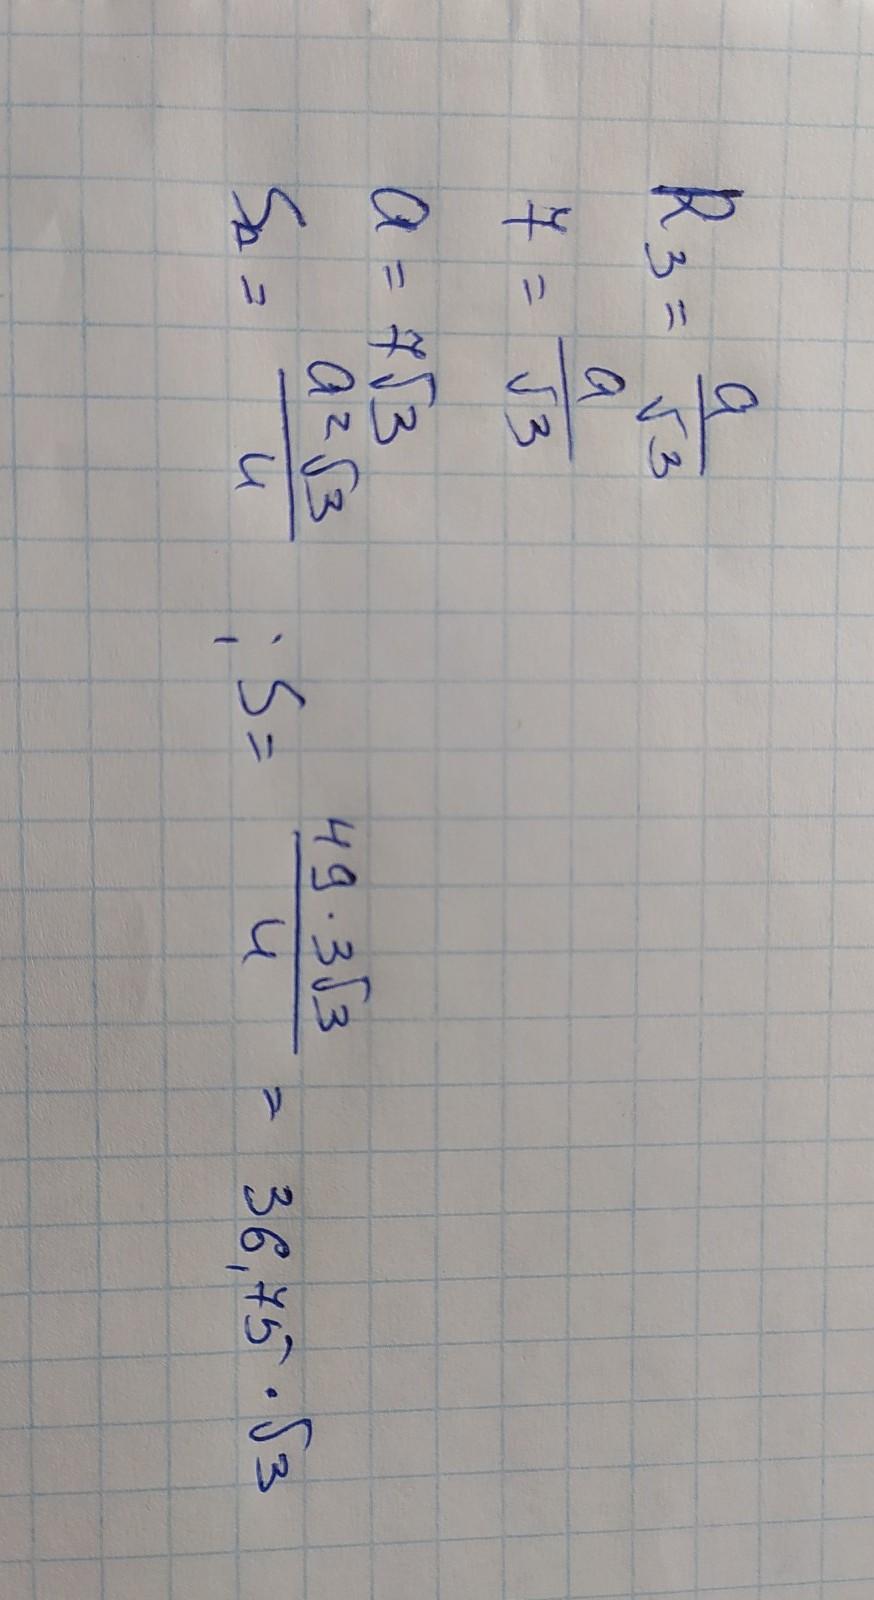 R3 = a/√3
7 = a/√3
a = 7√3
S△ = a²√3/4 ; S = 49·3√3/4 = 36,75·√3